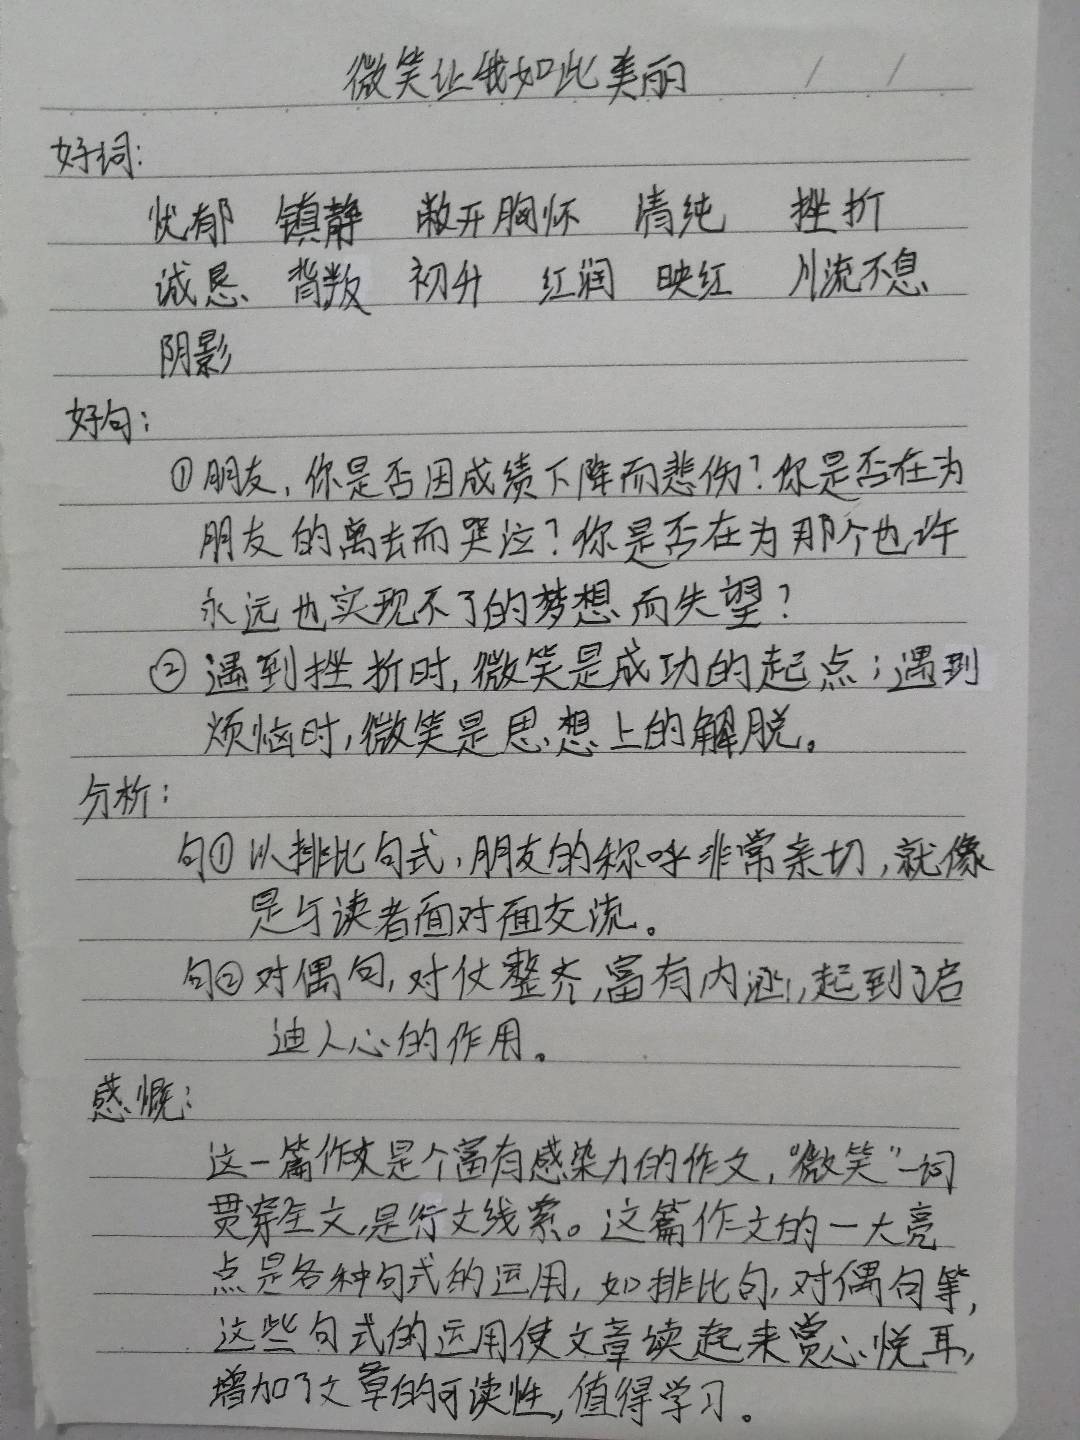 微笑让我如此美丽
好词:
忧郁 镇静 敞开胸怀 清纯 挫折
诚恳 背叛 初升 红润 映红 川流不息
阴影
好句:
①朋友,你是否因成绩下降而悲伤?你是否在为
朋友的离去而哭泣?你是否在为那个也许
永远也实现不了的梦想而失望?
②遇到挫折时,微笑是成功的起点;遇到
烦恼时,微笑是思想上的解脱。
分析:
句①以排比句式,朋友的称呼非常亲切,就像
是与读者面对面交流。
句②对偶句,对仗整齐,富有内涵,起到了启
迪人心的作用。
感慨:
这一篇作文是个富有感染力的作文,“微笑”一词
贯穿全文,是行文线索。这篇作文的一大亮
点是各种句式的运用,如排比句,对偶句等,
这些句式的运用使文章读起来赏心悦耳,
增加了文章的可读性,值得学习。